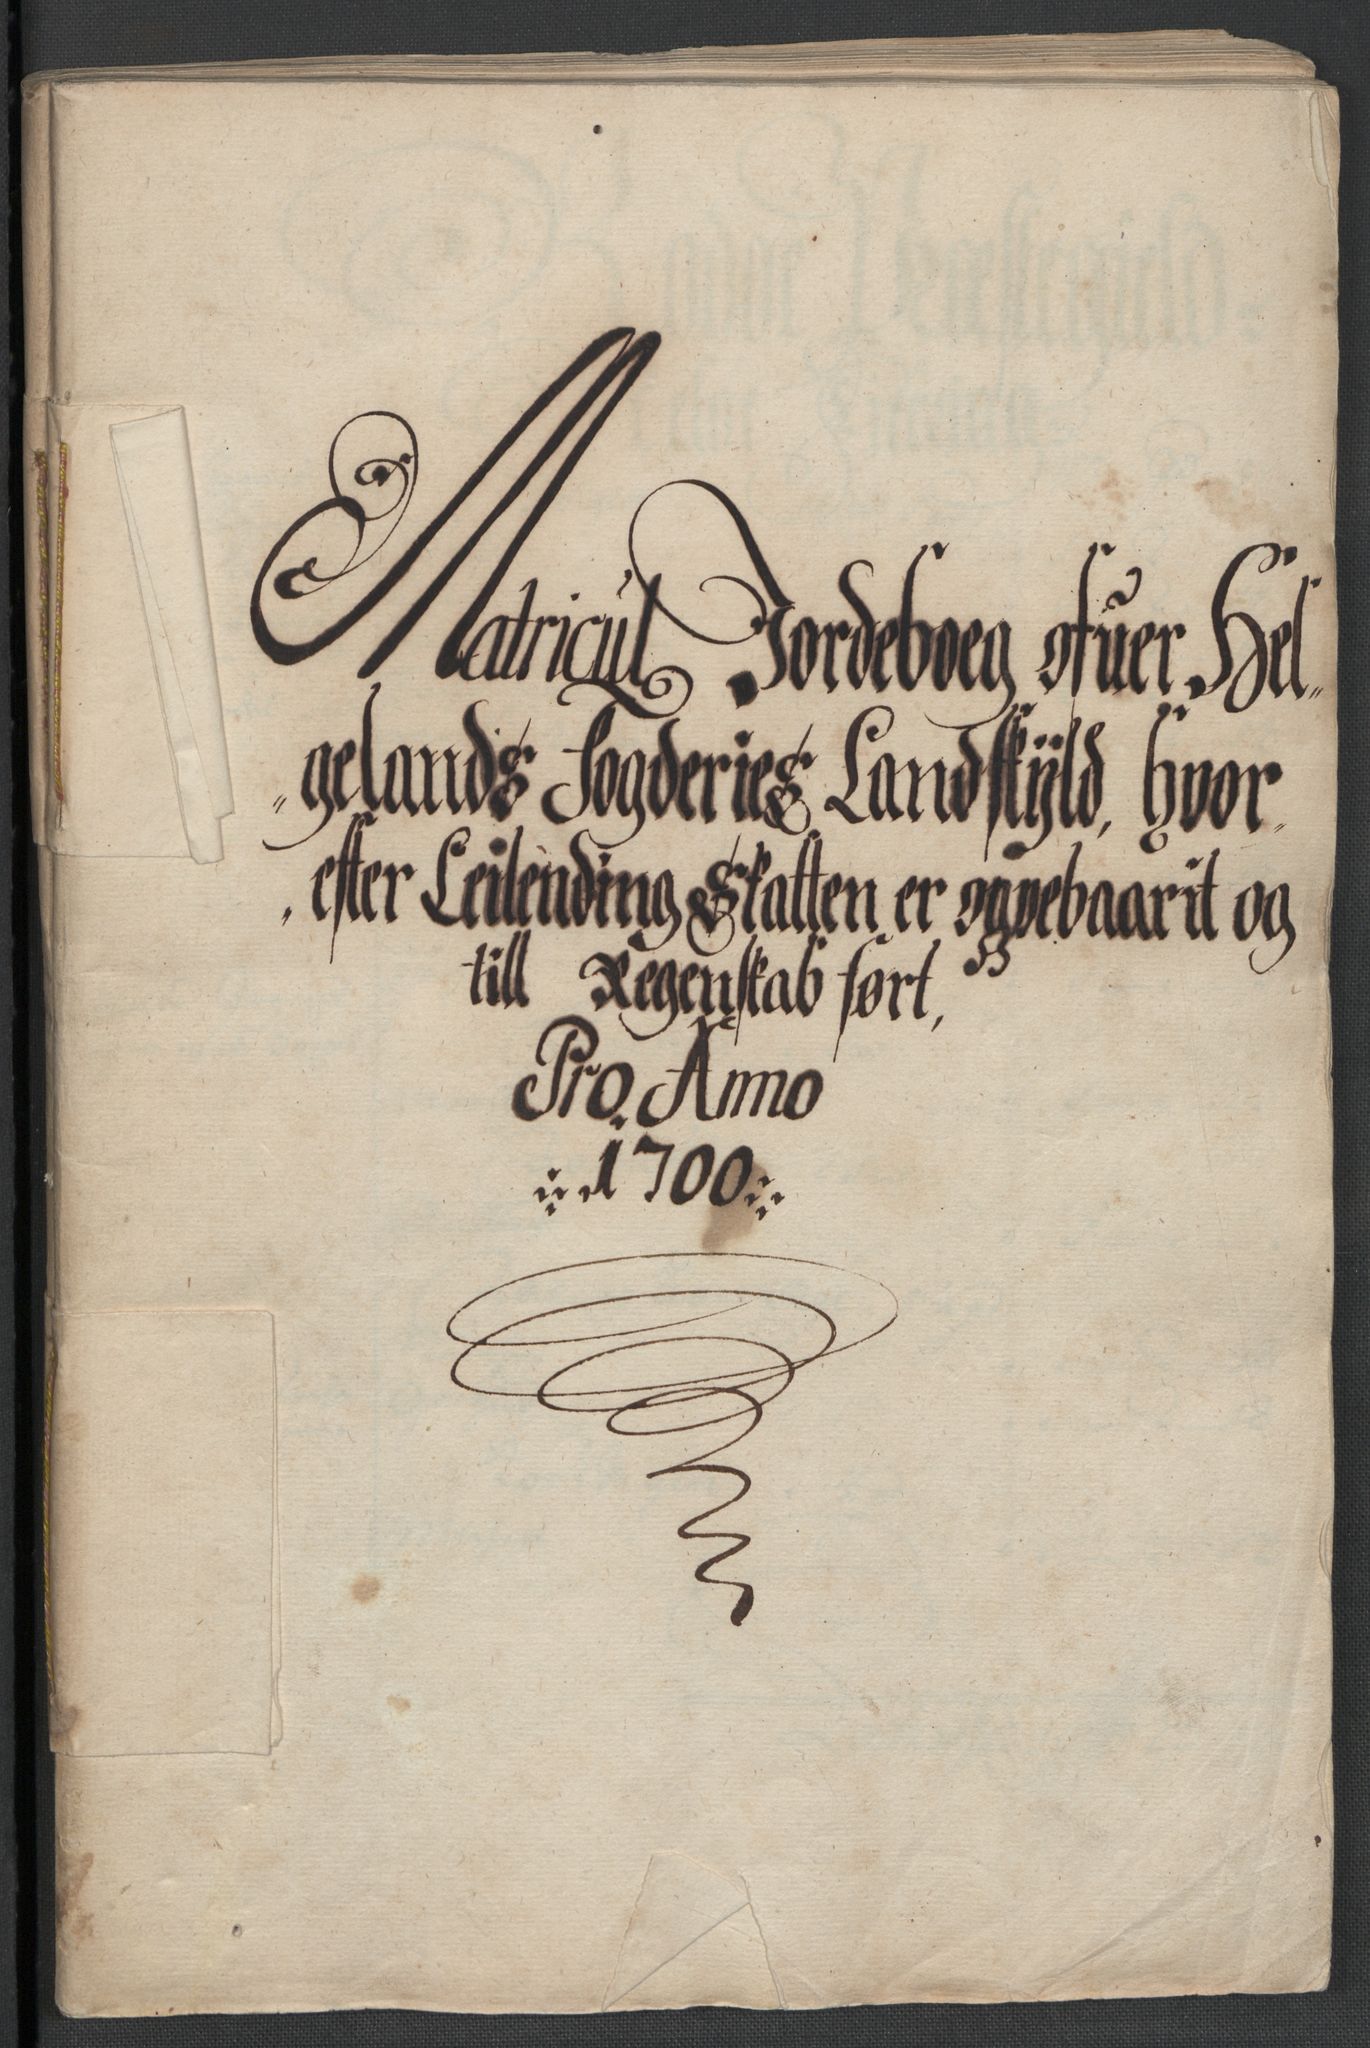 Matricul Jordeboeg ofuer Hel„
„gelands Fogderies Landskÿld, hvor„
„efter Leilending Skatten er oppebaarit og
till Regenskabført,
Pro. Anno
1700